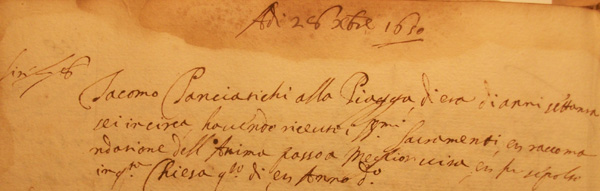 Adi 28 Xbre 1650
Jacomo Panciatichi alla Piazza, di era di anni settanta
sei incirca havendo ricevuti ssmi Sacramenti, en raccoma
ndatione dell'Anima passò a meglior vita, en fu sepolto
in qsta Chiesa qto di, en Anno do